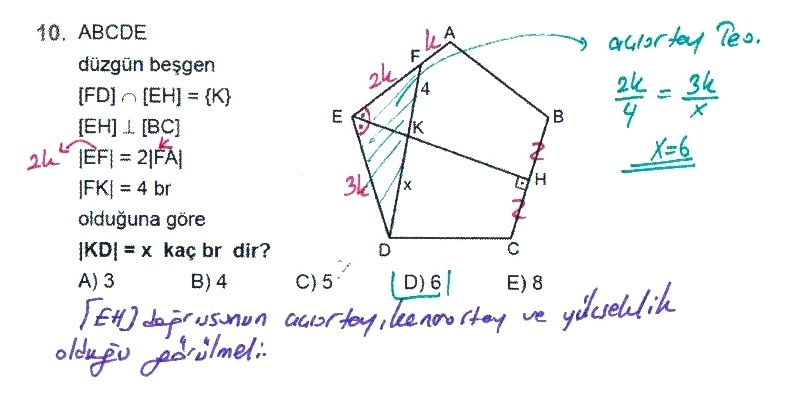 10. ABCDE
düzgün beşgen
[FD] ∩ [EH] = {K}
[EH] ⊥ [BC]
2k |EF| = 2|FA| k
|FK| = 4 br
olduğuna göre
|KD| = x kaç br dir?
A) 3 B) 4 C) 5 D) 6 E) 8
A
k
F
2k
4
E
B
K
2
H
3k
x
2
D
C
açıortay Teo.
2k/4 = 3k/x
x=6
[EH] doğrusunun açıortay, kenarortay ve yükseklik
olduğu görülmeli.